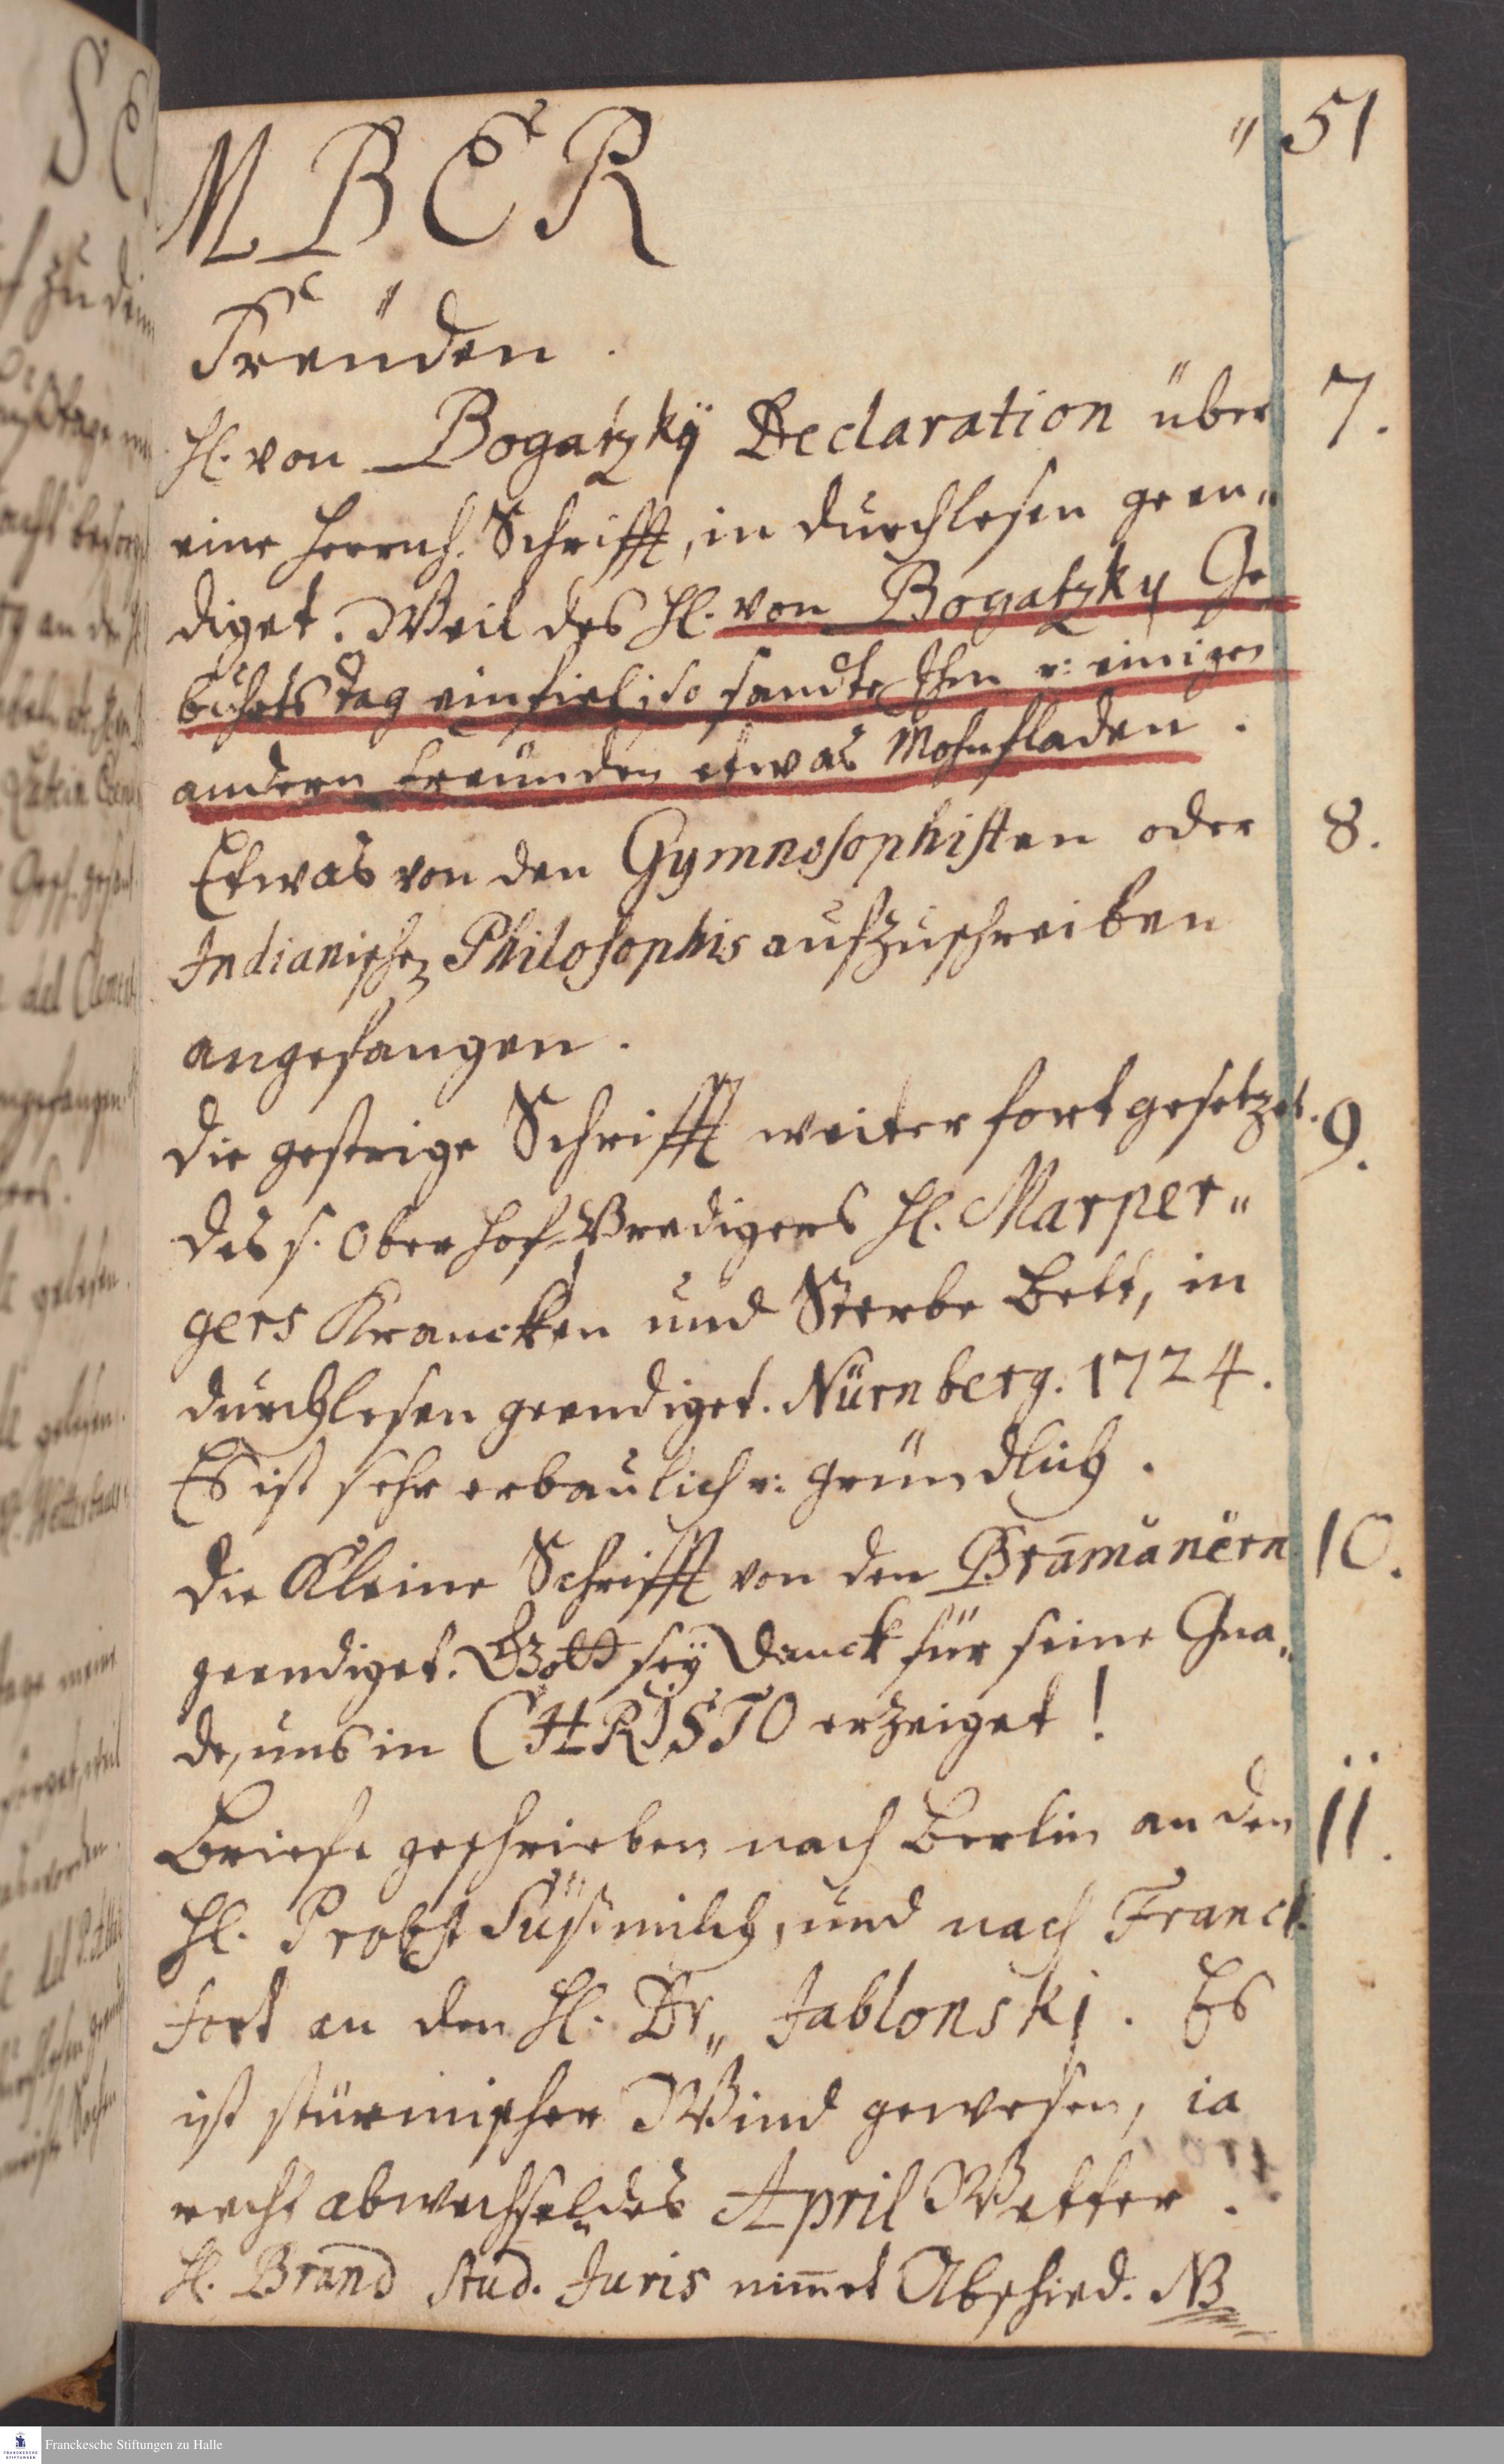 " 51
MBER
Freuden.
Hl. von Bogatzkÿ Declaration über 7.
eine Herrnh. Schrifft, in durchlesen geen„
diget. Weil des Hl. von Bogatzky Ge
buhrts tag einfiel; so sandte Ihm u: einigen
andern Freunden etwas Mohnfladen.
Etwas von den Gymnosophisten oder 8.
Indianischen Philosophis aufzuschreiben
angefangen.
Die gestrige Schrifft weiter fortgesetzet. 9.
Des s. Ober Hof-Predigers Hl. Marper„
gers Krancken und Sterbe Bett, in
durchlesen geendiget. Nürnberg. 1724.
Es ist sehr erbaulich u: gründlich.
Die Kleine Schrifft von den Bramanern 10.
geendiget. Gott sey Danck für seine Gna„
de, uns in CHRISTO erzeiget!
Briefe geschrieben nach Berlin an den 11.
Hl. Probst Süßmilch, und nach Franck
fort an den Hl. Dr„ Jablonski. Es
ist stürmischer Wind gewesen, ia
recht abwechselndes April Wetter.
Hl. Brand Stud. Juris nim̅et Abschied. NB
Franckesche Stiftungen zu Halle